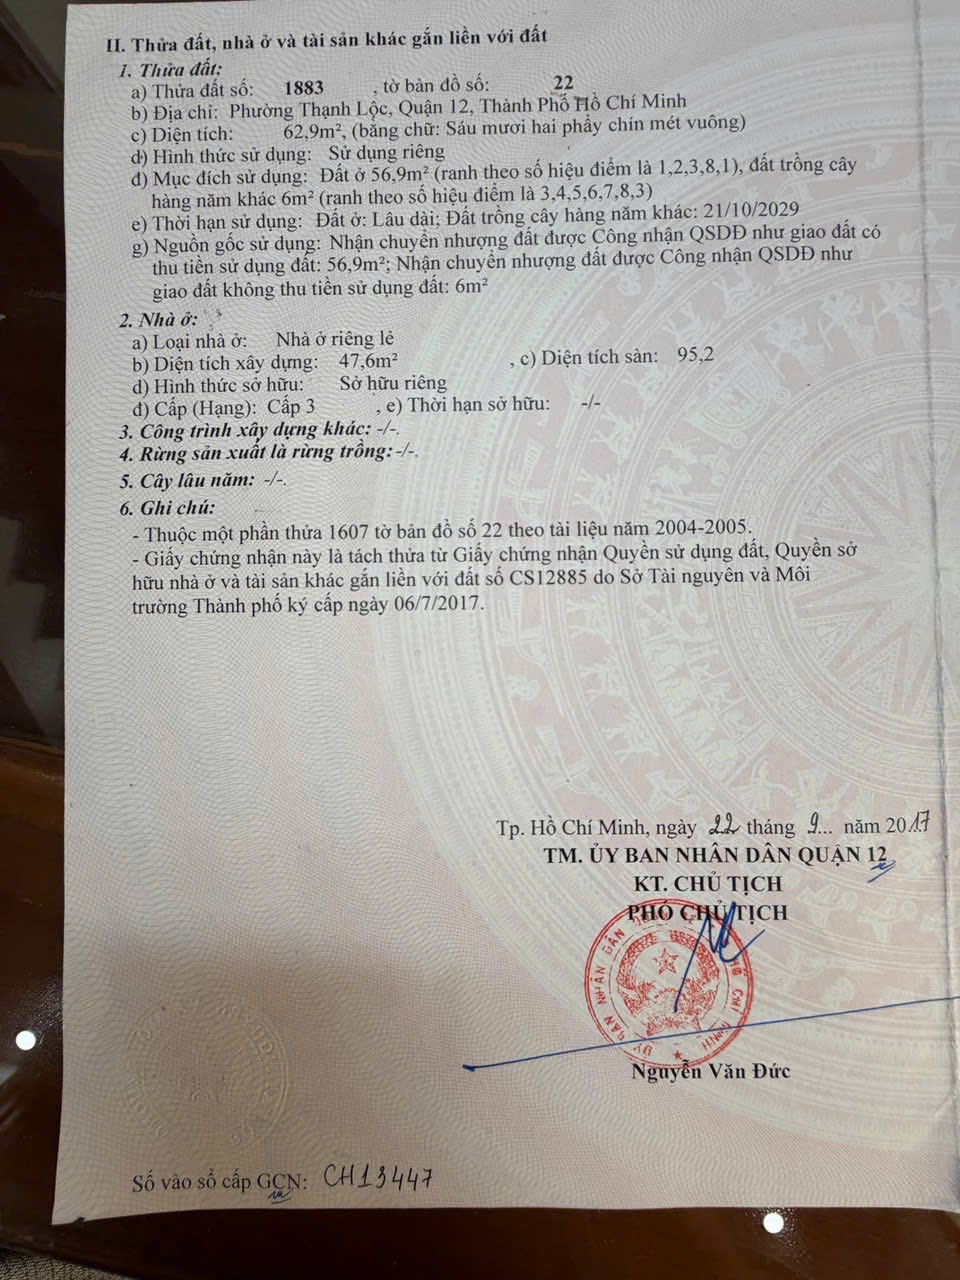 II. Thửa đất, nhà ở và tài sản khác gắn liền với đất
1. Thửa đất:
a) Thửa đất số: 1883 , tờ bản đồ số: 22
b) Địa chỉ: Phường Thạnh Lộc, Quận 12, Thành Phố Hồ Chí Minh
c) Diện tích: 62,9m², (bằng chữ: Sáu mươi hai phẩy chín mét vuông)
d) Hình thức sử dụng: Sử dụng riêng
đ) Mục đích sử dụng: Đất ở 56,9m² (ranh theo số hiệu điểm là 1,2,3,8,1), đất trồng cây
hàng năm khác 6m² (ranh theo số hiệu điểm là 3,4,5,6,7,8,3)
e) Thời hạn sử dụng: Đất ở: Lâu dài; Đất trồng cây hàng năm khác: 21/10/2029
g) Nguồn gốc sử dụng: Nhận chuyển nhượng đất được Công nhận QSDĐ như giao đất có
thu tiền sử dụng đất: 56,9m²; Nhận chuyển nhượng đất được Công nhận QSDĐ như
giao đất không thu tiền sử dụng đất: 6m²
2. Nhà ở:
a) Loại nhà ở: Nhà ở riêng lẻ
b) Diện tích xây dựng: 47,6m² , c) Diện tích sàn: 95,2
d) Hình thức sở hữu: Sở hữu riêng
đ) Cấp (Hạng): Cấp 3 , e) Thời hạn sở hữu: -/-
3. Công trình xây dựng khác: -/-.
4. Rừng sản xuất là rừng trồng: -/-.
5. Cây lâu năm: -/-.
6. Ghi chú:
- Thuộc một phần thửa 1607 tờ bản đồ số 22 theo tài liệu năm 2004-2005.
- Giấy chứng nhận này là tách thửa từ Giấy chứng nhận Quyền sử dụng đất, Quyền sở
hữu nhà ở và tài sản khác gắn liền với đất số CS12885 do Sở Tài nguyên và Môi
trường Thành phố ký cấp ngày 06/7/2017.
Tp. Hồ Chí Minh, ngày 22 tháng 9... năm 2017
TM. ỦY BAN NHÂN DÂN QUẬN 12
KT. CHỦ TỊCH
PHÓ CHỦ TỊCH
Nguyễn Văn Đức
Số vào sổ cấp GCN: CH13447